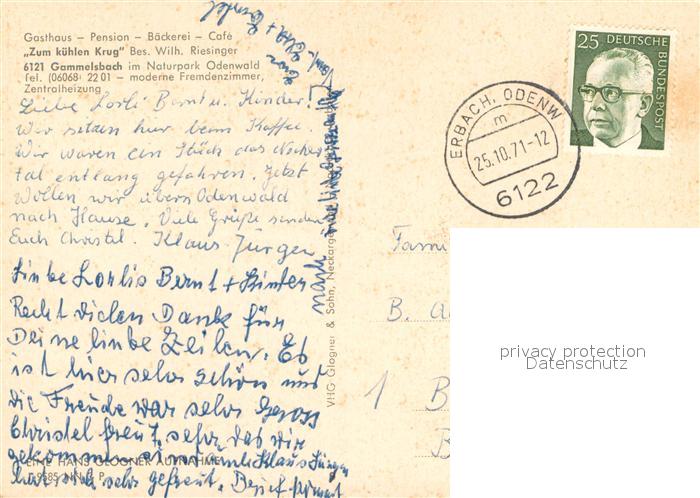 Gasthaus – Pension – Bäckerei – Café
„Zum kühlen Krug" Bes. Wilh. Riesinger
6121 Gammelsbach im Naturpark Odenwald
Tel. (06068) 22 01 – moderne Fremdenzimmer,
Zentralheizung
Liebe Lorli Bernt u. Kinder!
Wir sitzen hier beim Kaffee.
Wir waren ein Stück das Necker
tal entlang gefahren. Jetzt
wollen wir übern Odenwald
nach Hause. Viele Grüße senden
Euch Christel. Klaus. Jürgen
Liebe Lorlis Bernt + Kinter
Recht vielen Dank für
Deine liebe Zeilen. Es
ist hier sehr schön und
die Freude war sehr gross
Christel freut sehr das wir
gekommen
hat sich sehr gefreut. Brief kommt
nach
EINE HANS GLOGNER AUFNAHME
VHG Glogner & Sohn, Neckarge
25 DEUTSCHE
BUNDESPOST
ERBACH, ODENW
m
25.10.71-12
6122
Fami
B.
1 B
B
privacy protection
Datenschutz